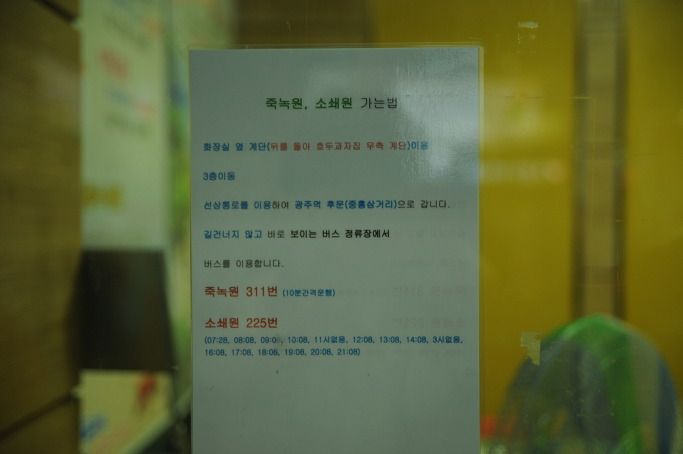 죽녹원, 소쇄원 가는법
화장실 옆 계단(뒤를 돌아 호두과자집 우측 계단)이용
3층이동
선상통로를 이용하여 광주역 후문(중흥삼거리)으로 갑니다.
길건너지 않고 바로 보이는 버스 정류장에서
버스를 이용합니다.
죽녹원 311번 (10분간격운행)
소쇄원 225번
(07:28, 08:08, 09:08, 10:08, 11시없음, 12:08, 13:08, 14:08, 3시없음,
16:08, 17:08, 18:08, 19:08, 20:08, 21:08)